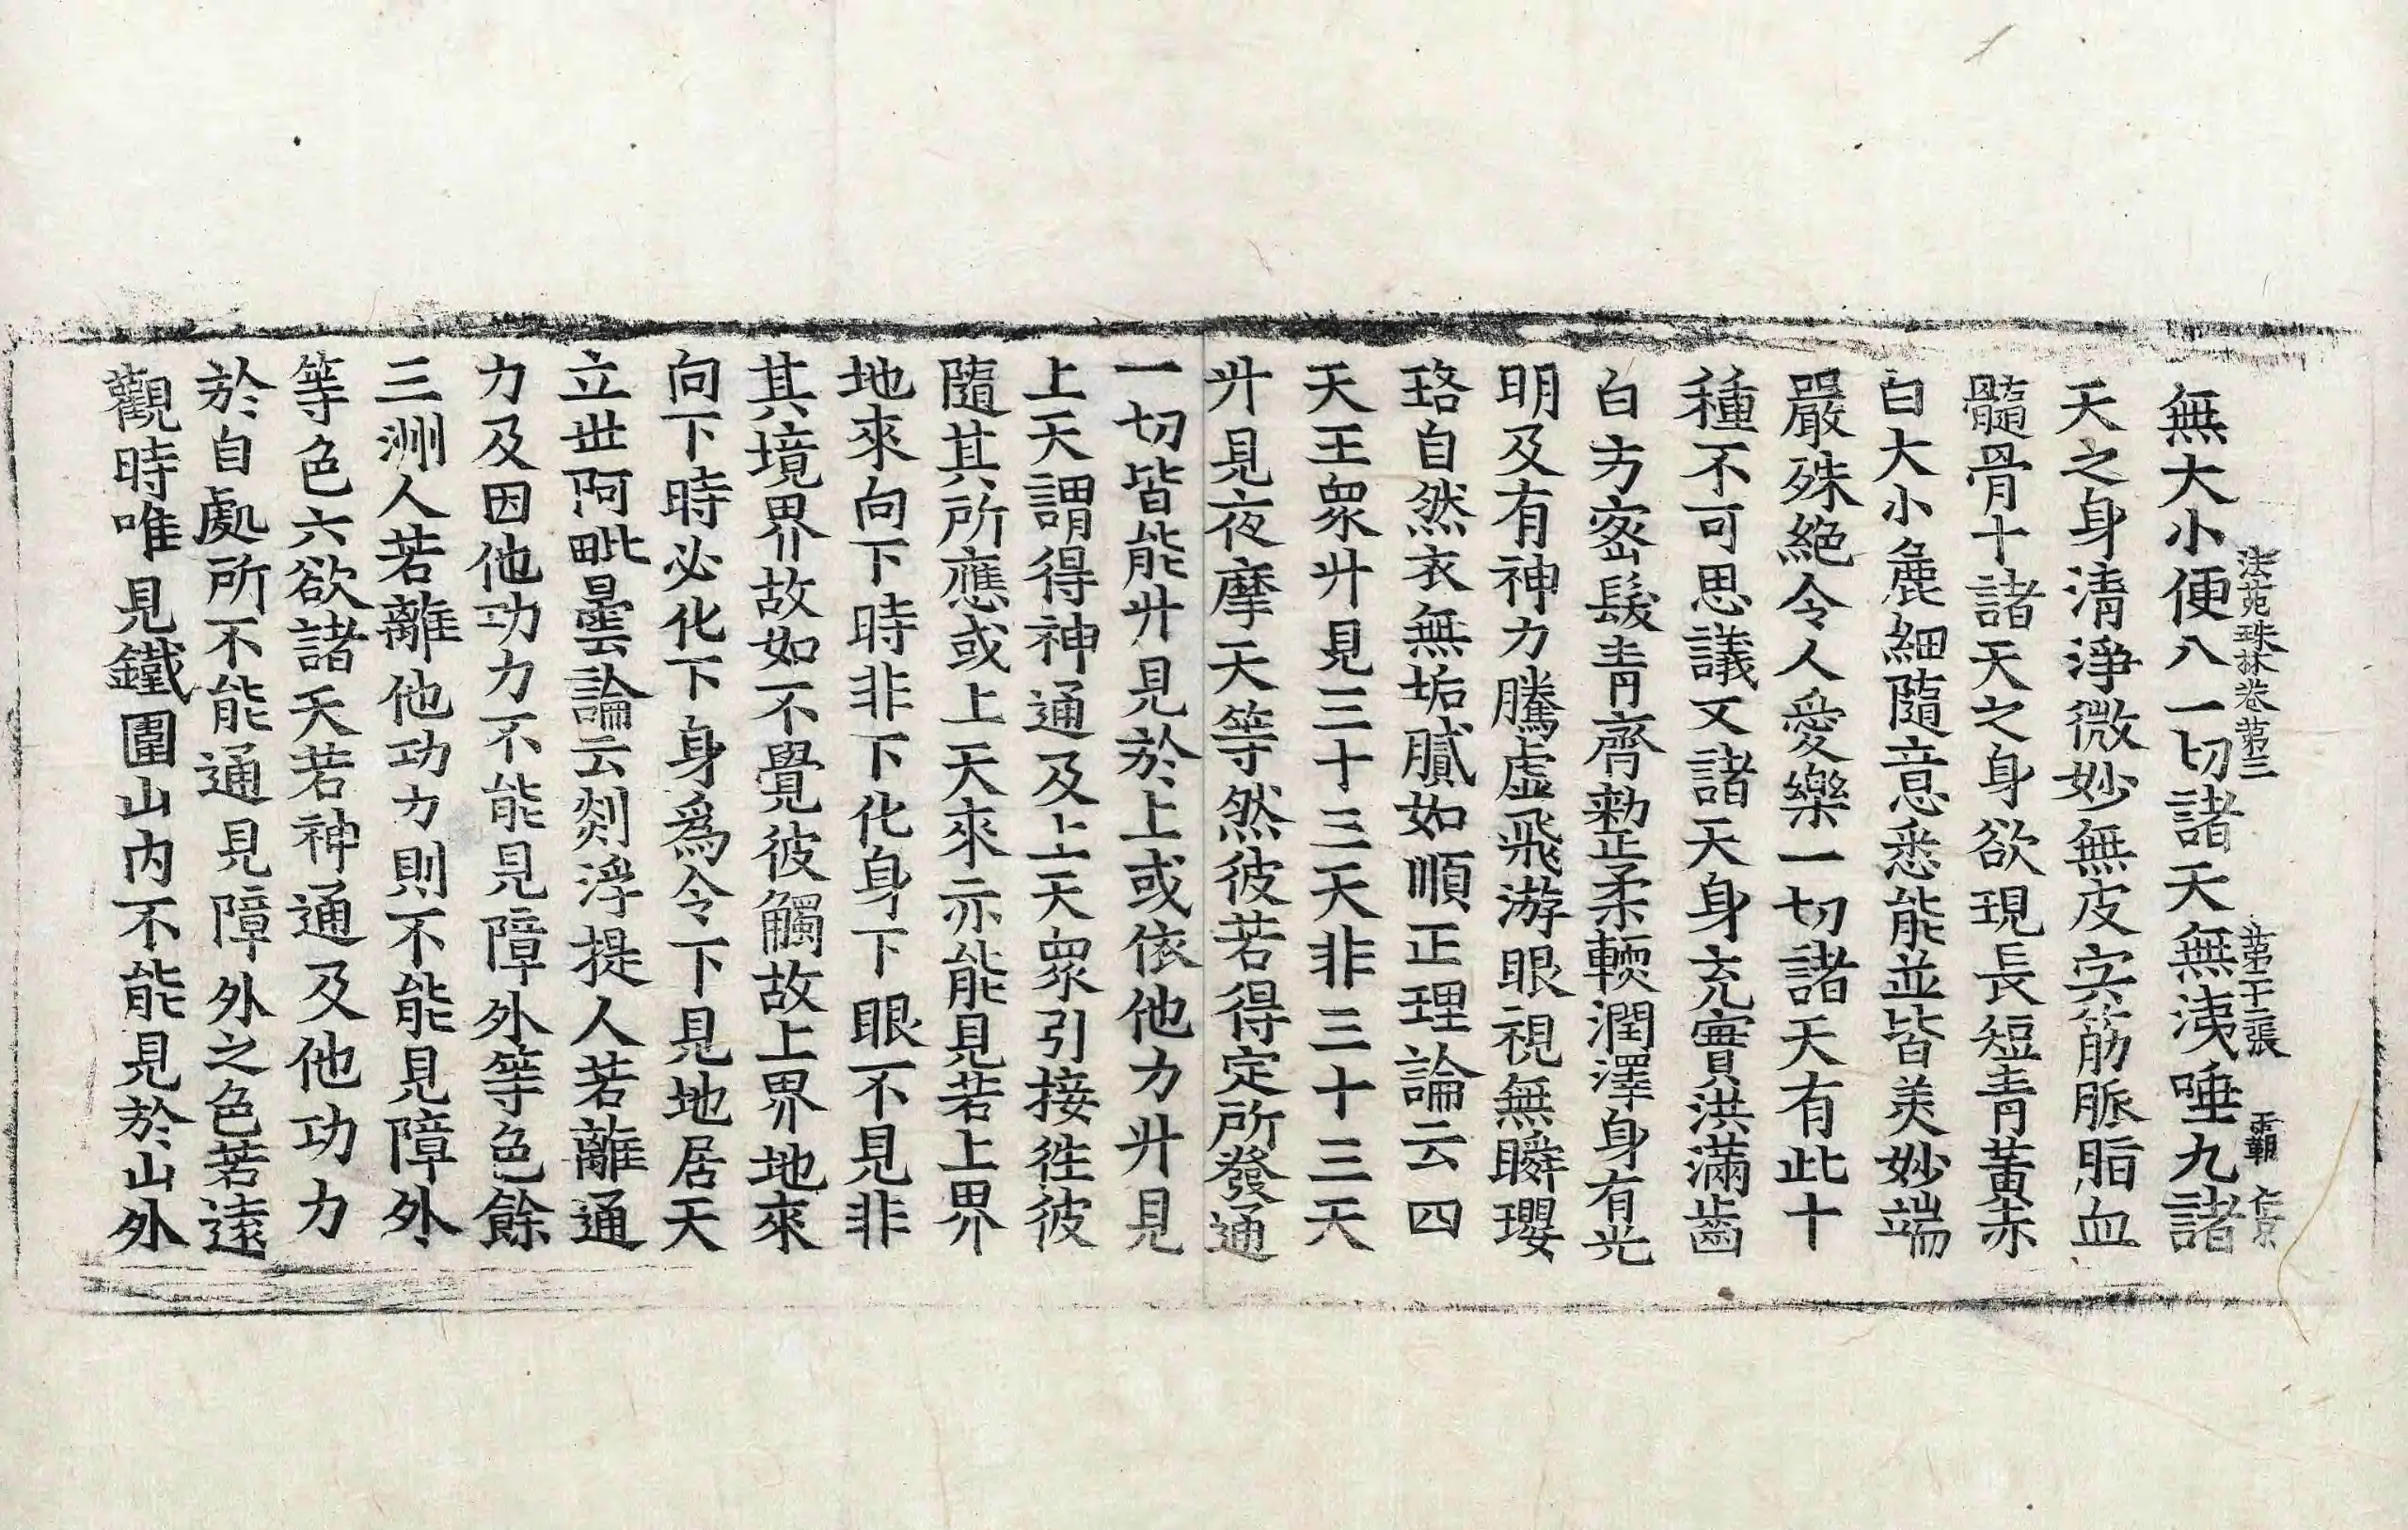 法苑珠林卷第三 第十二張 覇
無大小便八一切諸天無洟唾九諸
天之身清淨微妙無皮宍筋脈脂血
髓骨十諸天之身欲現長短青黃赤
白大小麁細隨意悉能並皆美妙端
嚴殊絶令人愛樂一切諸天有此十
種不可思議又諸天身充實洪滿齒
白方密髮青齊整柔輭潤澤身有光
明及有神力騰虛飛游眼視無瞬瓔
珞自然衣無垢膩如順正理論云四
天王眾升見三十三天非三十三天
升見夜摩天等然彼若得定所發通
一切皆能升見於上或依他力升見
上天謂得神通及上天眾引接徃彼
隨其所應或上天來亦能見若上界
地來向下時非下化身下眼不見非
其境界故如不覺彼觸故上界地來
向下時必化下身爲令下見地居天
立世阿毗曇論云剡浮提人若離通
力及因他功力不能見障外等色餘
三洲人若離他功力則不能見障外
等色六欲諸天若神通及他功力
於自處所不能通見障外之色若遠
觀時唯見鐵圍山內不能見於山外